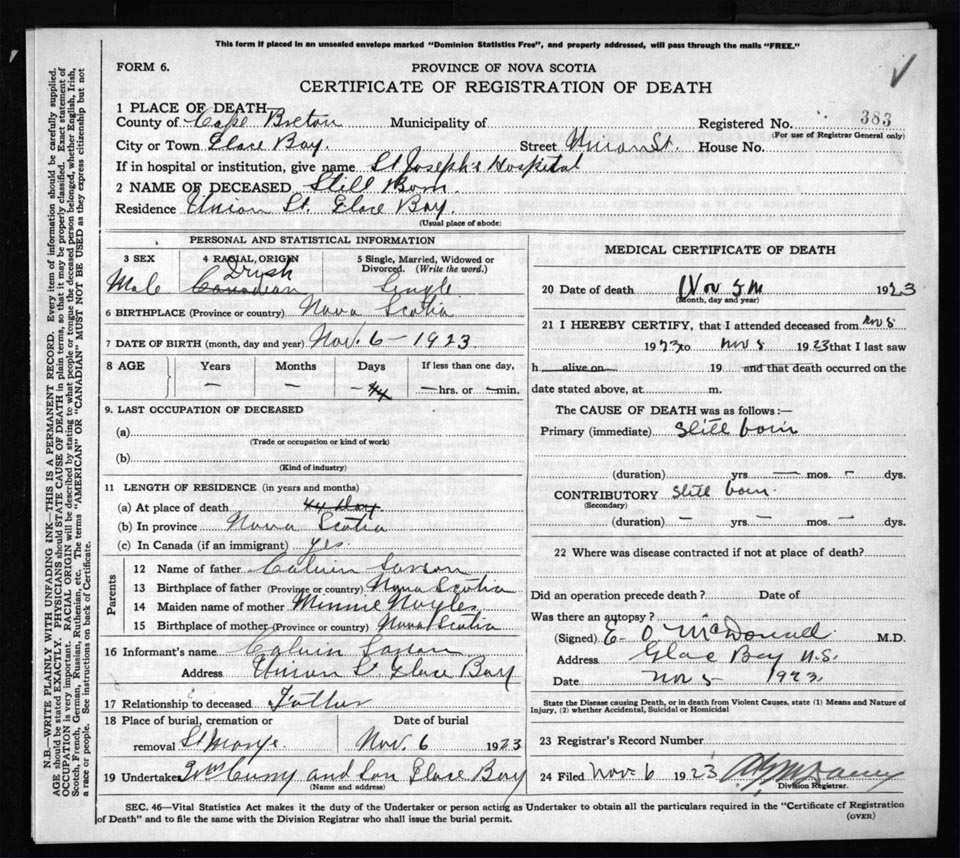 This form if placed in an unsealed envelope marked "Dominion Statistics Free", and properly addressed, will pass through the mails "FREE."
FORM 6.
PROVINCE OF NOVA SCOTIA
CERTIFICATE OF REGISTRATION OF DEATH
1 PLACE OF DEATH
County of Cape Breton Municipality of Registered No. 383
(For use of Registrar General only)
City or Town Glace Bay. Street Union St. House No.
If in hospital or institution, give name St Joseph's Hospital
2 NAME OF DECEASED Still Born.
Residence Union St. Glace Bay.
(Usual place of abode)
PERSONAL AND STATISTICAL INFORMATION
3 SEX 4 RACIAL ORIGIN 5 Single, Married, Widowed or Divorced. (Write the word.)
Male Canadian Single
6 BIRTHPLACE (Province or country) Nova Scotia
7 DATE OF BIRTH (month, day and year) Nov. 6 - 1923
8 AGE Years Months Days If less than one day,
— — — hrs. or — min.
9. LAST OCCUPATION OF DECEASED
(a)
(Trade or occupation or kind of work)
(b)
(Kind of industry)
11 LENGTH OF RESIDENCE (in years and months)
(a) At place of death
(b) In province Nova Scotia
(c) In Canada (if an immigrant) Yes.
Parents
12 Name of father Calvin
13 Birthplace of father (Province or country) Nova Scotia
14 Maiden name of mother Minnie
15 Birthplace of mother (Province or country) Nova Scotia
16 Informant's name Calvin
Address Union St Glace Bay
17 Relationship to deceased Father
18 Place of burial, cremation or removal Date of burial
Nov. 6 1923
19 Undertaker and Son Glace Bay
(Name and address)
MEDICAL CERTIFICATE OF DEATH
20 Date of death Nov 5th 1923
(Month, day and year)
21 I HEREBY CERTIFY, that I attended deceased from Nov 5
1923 to Nov 5 1923 that I last saw
h alive on 19 and that death occurred on the
date stated above, at m.
The CAUSE OF DEATH was as follows:—
Primary (immediate) Still born
(duration) yrs — mos. – dys.
CONTRIBUTORY Still born.
(Secondary)
(duration) – yrs – mos. – dys.
22 Where was disease contracted if not at place of death?
Did an operation precede death? Date of
Was there an autopsy?
(Signed) E. O. McDonald M.D.
Address Glace Bay N.S.
Date Nov 5 1923
State the Disease causing Death, or in death from Violent Causes, state (1) Means and Nature of
Injury, (2) whether Accidental, Suicidal or Homicidal
23 Registrar's Record Number
24 Filed Nov 6 1923
Division Registrar.
SEC. 46—Vital Statistics Act makes it the duty of the Undertaker or person acting as Undertaker to obtain all the particulars required in the "Certificate of Registration
of Death" and to file the same with the Division Registrar who shall issue the burial permit.
(OVER)
N.B.—WRITE PLAINLY WITH UNFADING INK—THIS IS A PERMANENT RECORD. Every item of information should be carefully supplied.
AGE should be stated EXACTLY. PHYSICIANS should STATE CAUSE OF DEATH in plain terms, so that it may be properly classified. Exact statement of
OCCUPATION is very important. RACIAL ORIGIN will be described by stating to what people or tongue the deceased person belonged, whether English, Irish,
Scotch, French, German, Russian, Ruthenian, etc. The terms "AMERICAN" OR "CANADIAN" MUST NOT BE USED as they express citizenship but not
a race or people. See instructions on back of Certificate.